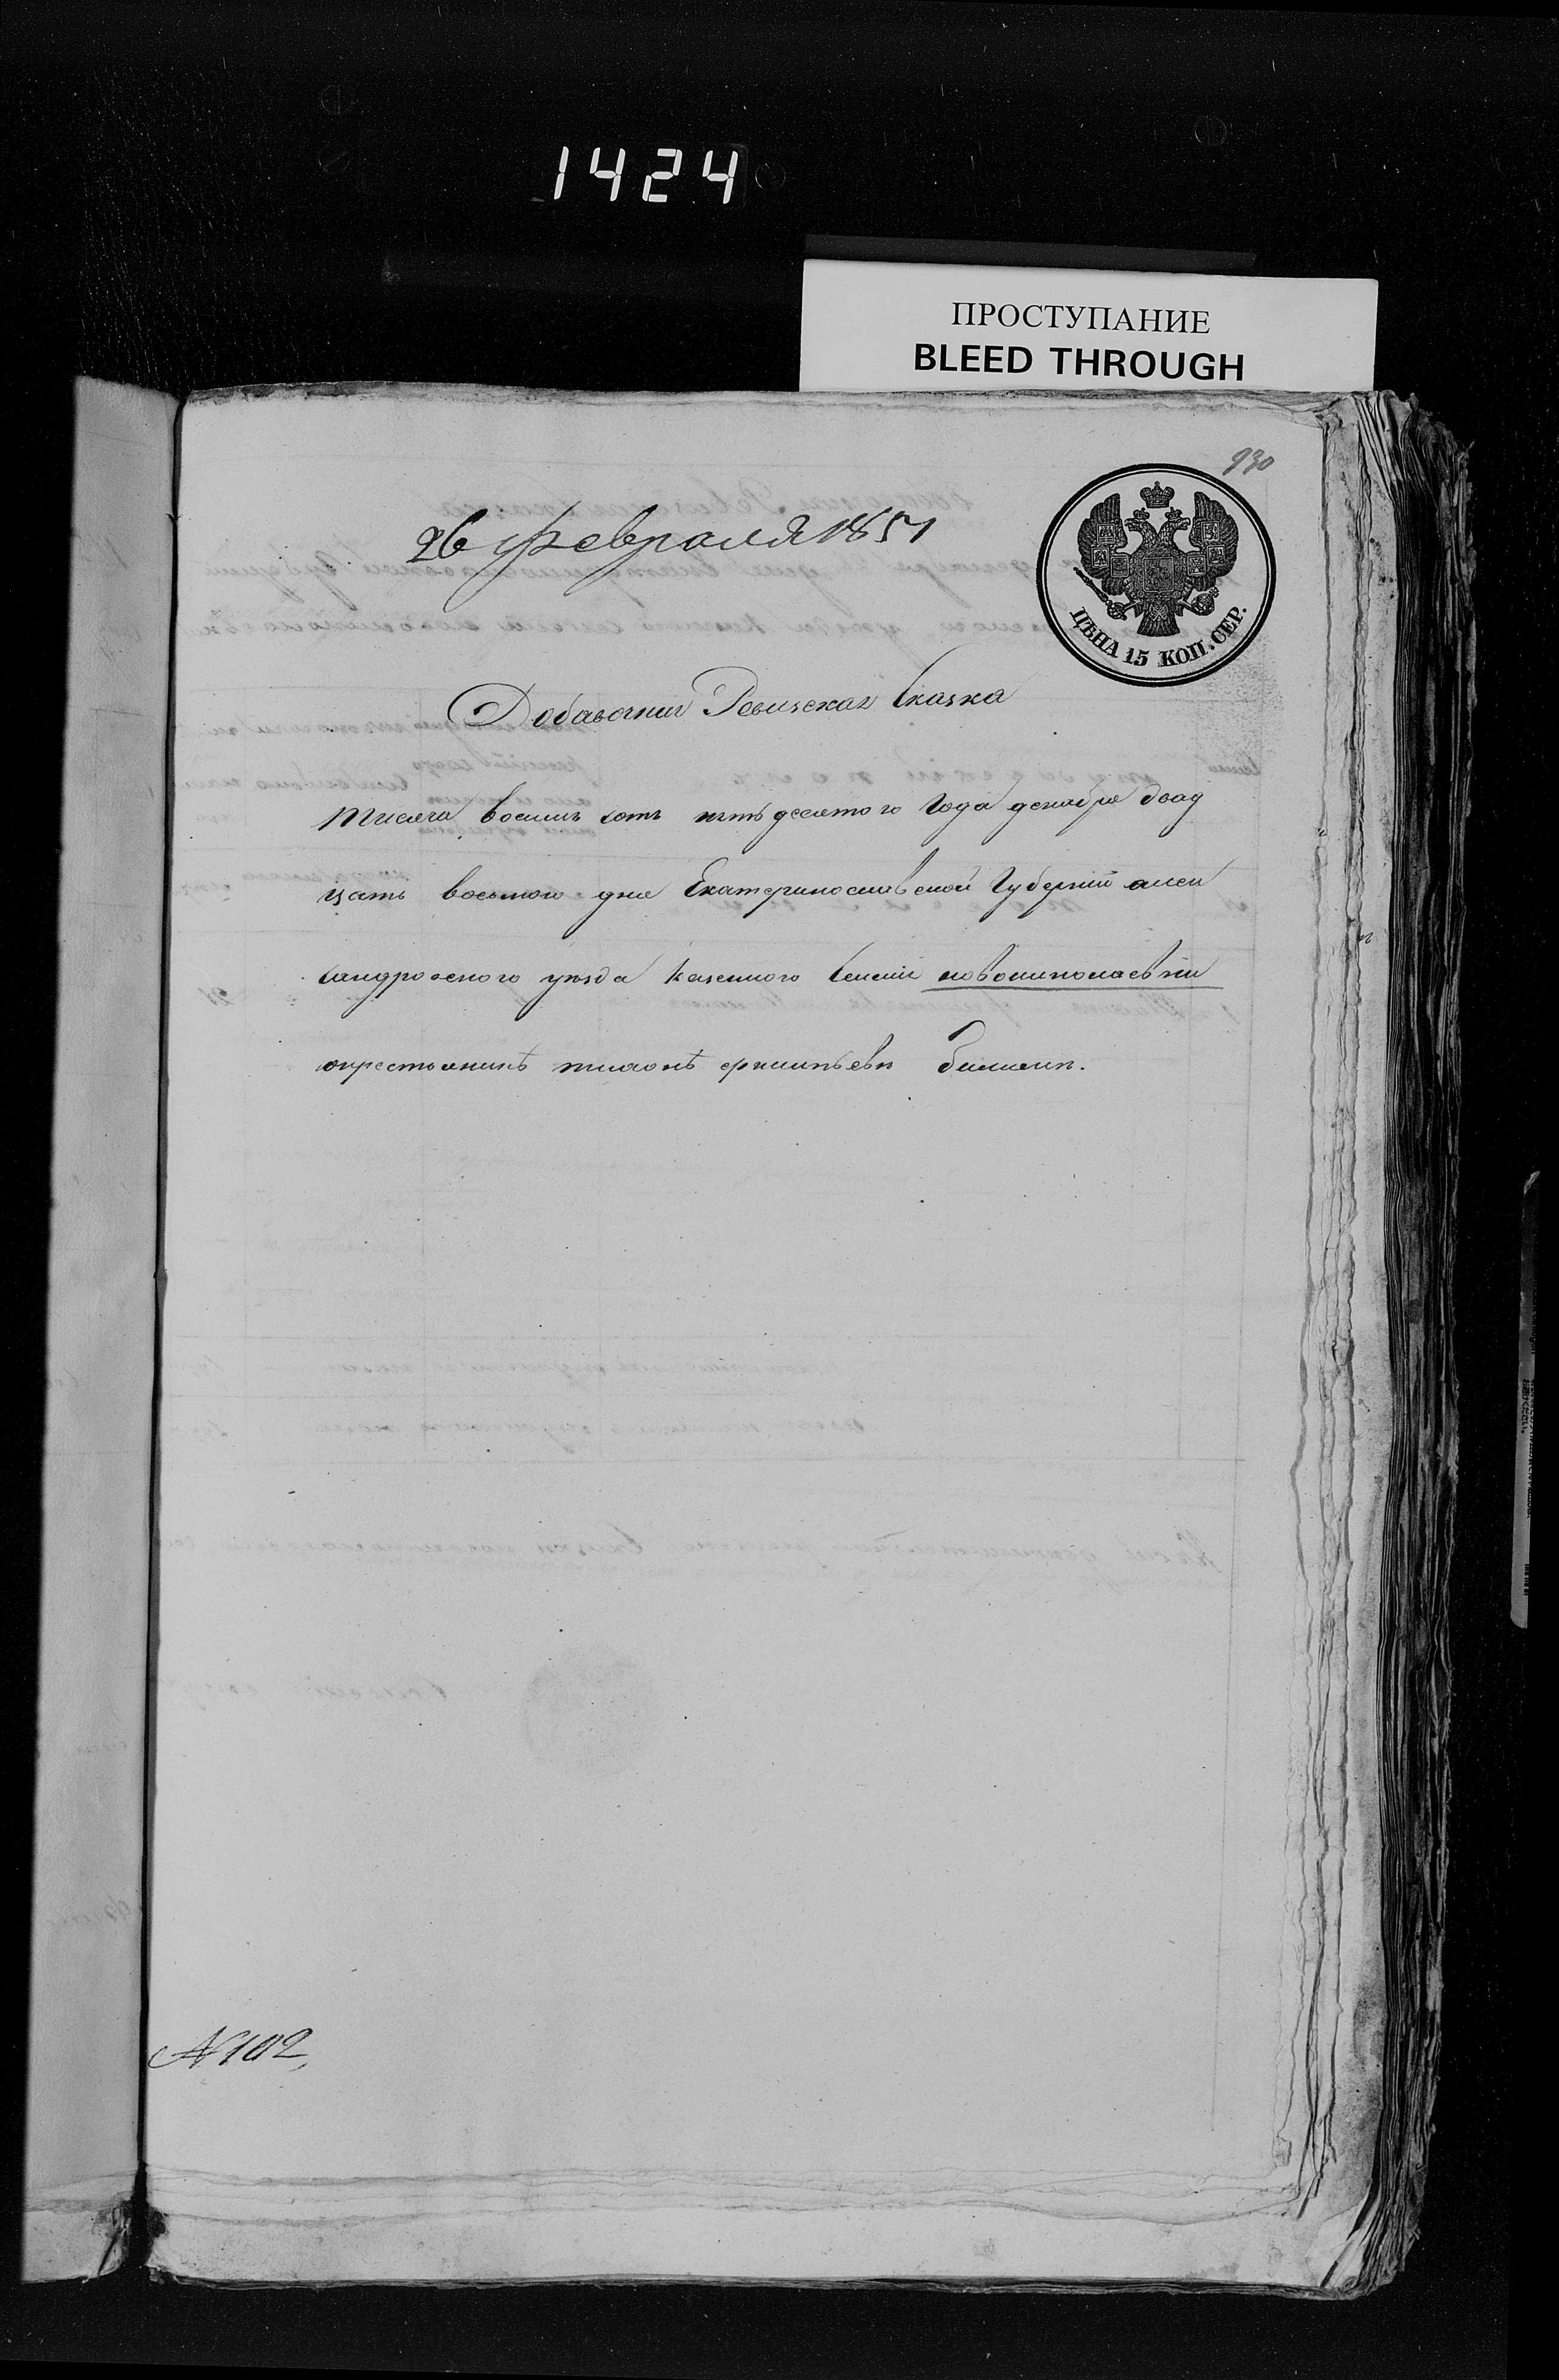 1424
ПРОСТУПАНИЕ
BLEED THROUGH
930
26 февраля 1851
ЦѢНА 15 КОП. СЕР.
Добавочная Ревизская Сказка
тисяча восимь сотъ пятьдесятого Года декабря двад
цать восьмого дня Екатеринославской Губерній алек
сандровского уезда казенного Селения новониколаевки
окрестьянинѣ филипьевѣ
№102